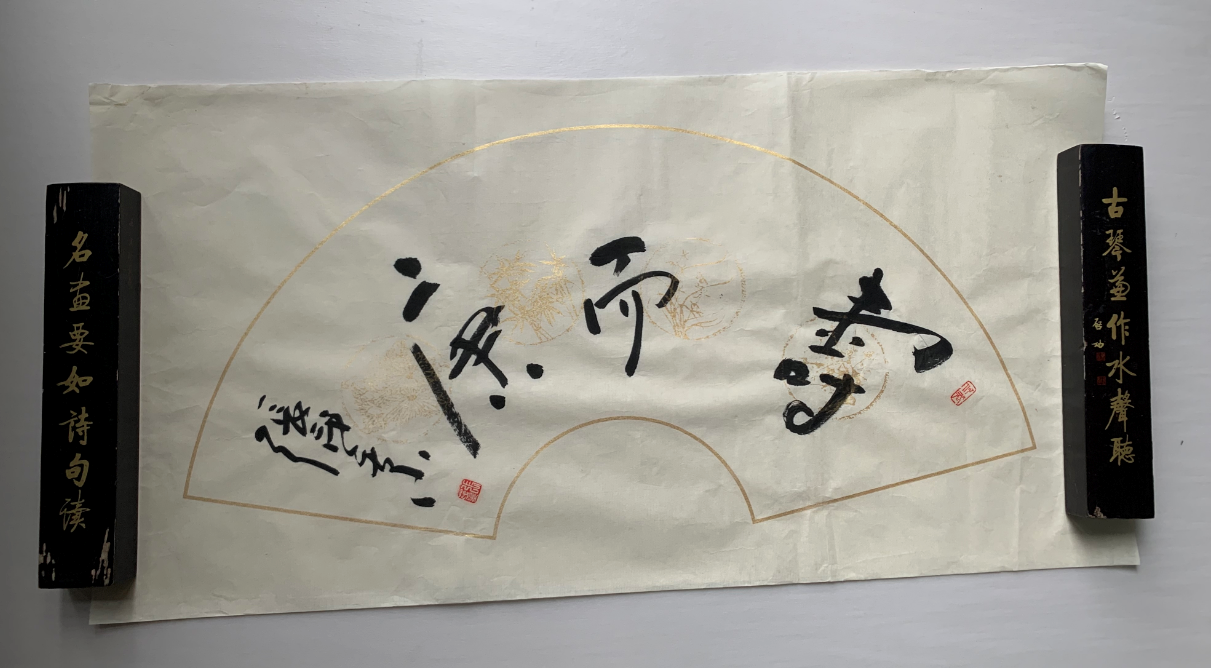 壽而康
古琴兼作水聲聽
啓功
名畫要如詩句讀